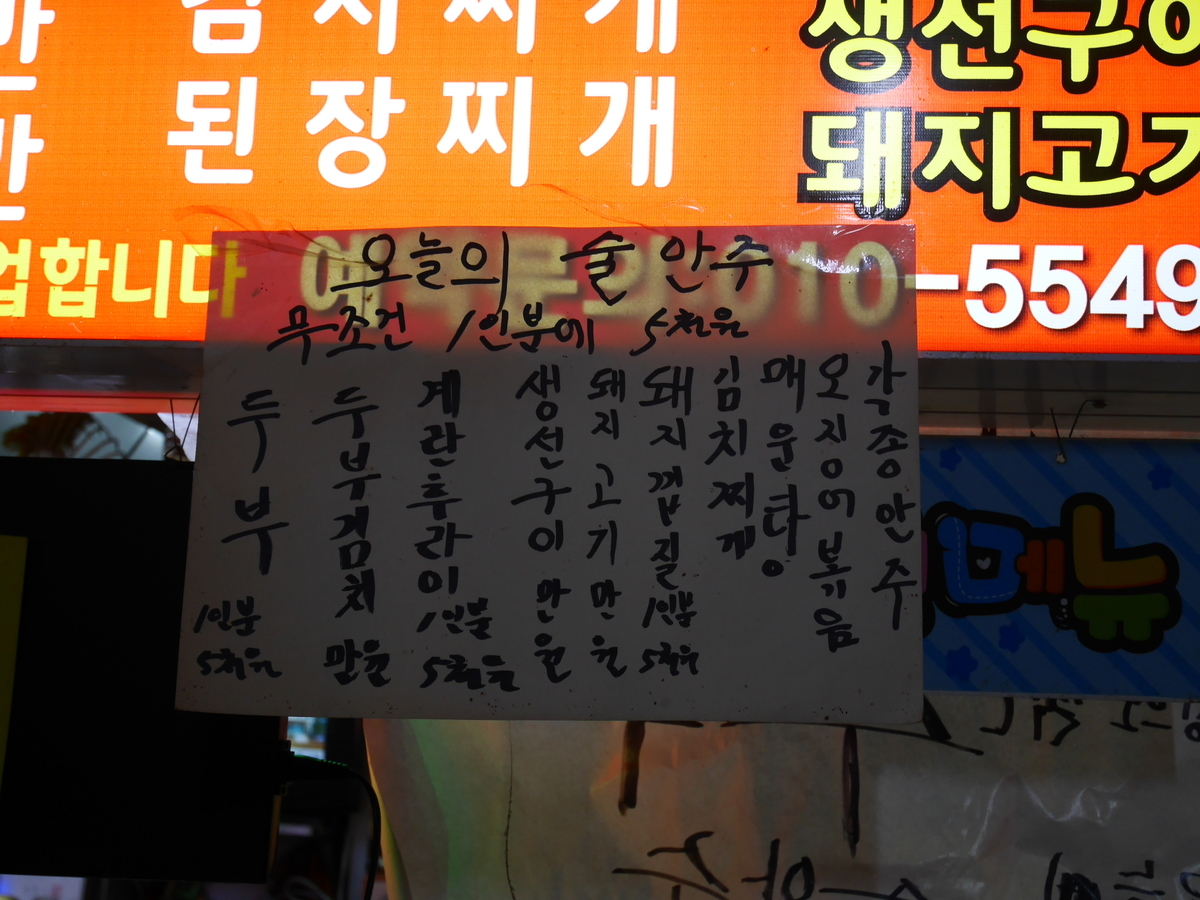 김치찌개
된장찌개
생선구이
돼지고기
업합니다
예약문의 010-5549
오늘의 술안주
무조건 1인분에 5천원
두부 1인분 5천원
두부김치 만원
계란후라이 1인분 5천원
생선구이 만원
돼지고기 만원
돼지껍질 1인분 5천원
김치찌게
매운탕
오징어볶기음
각종안주
메뉴